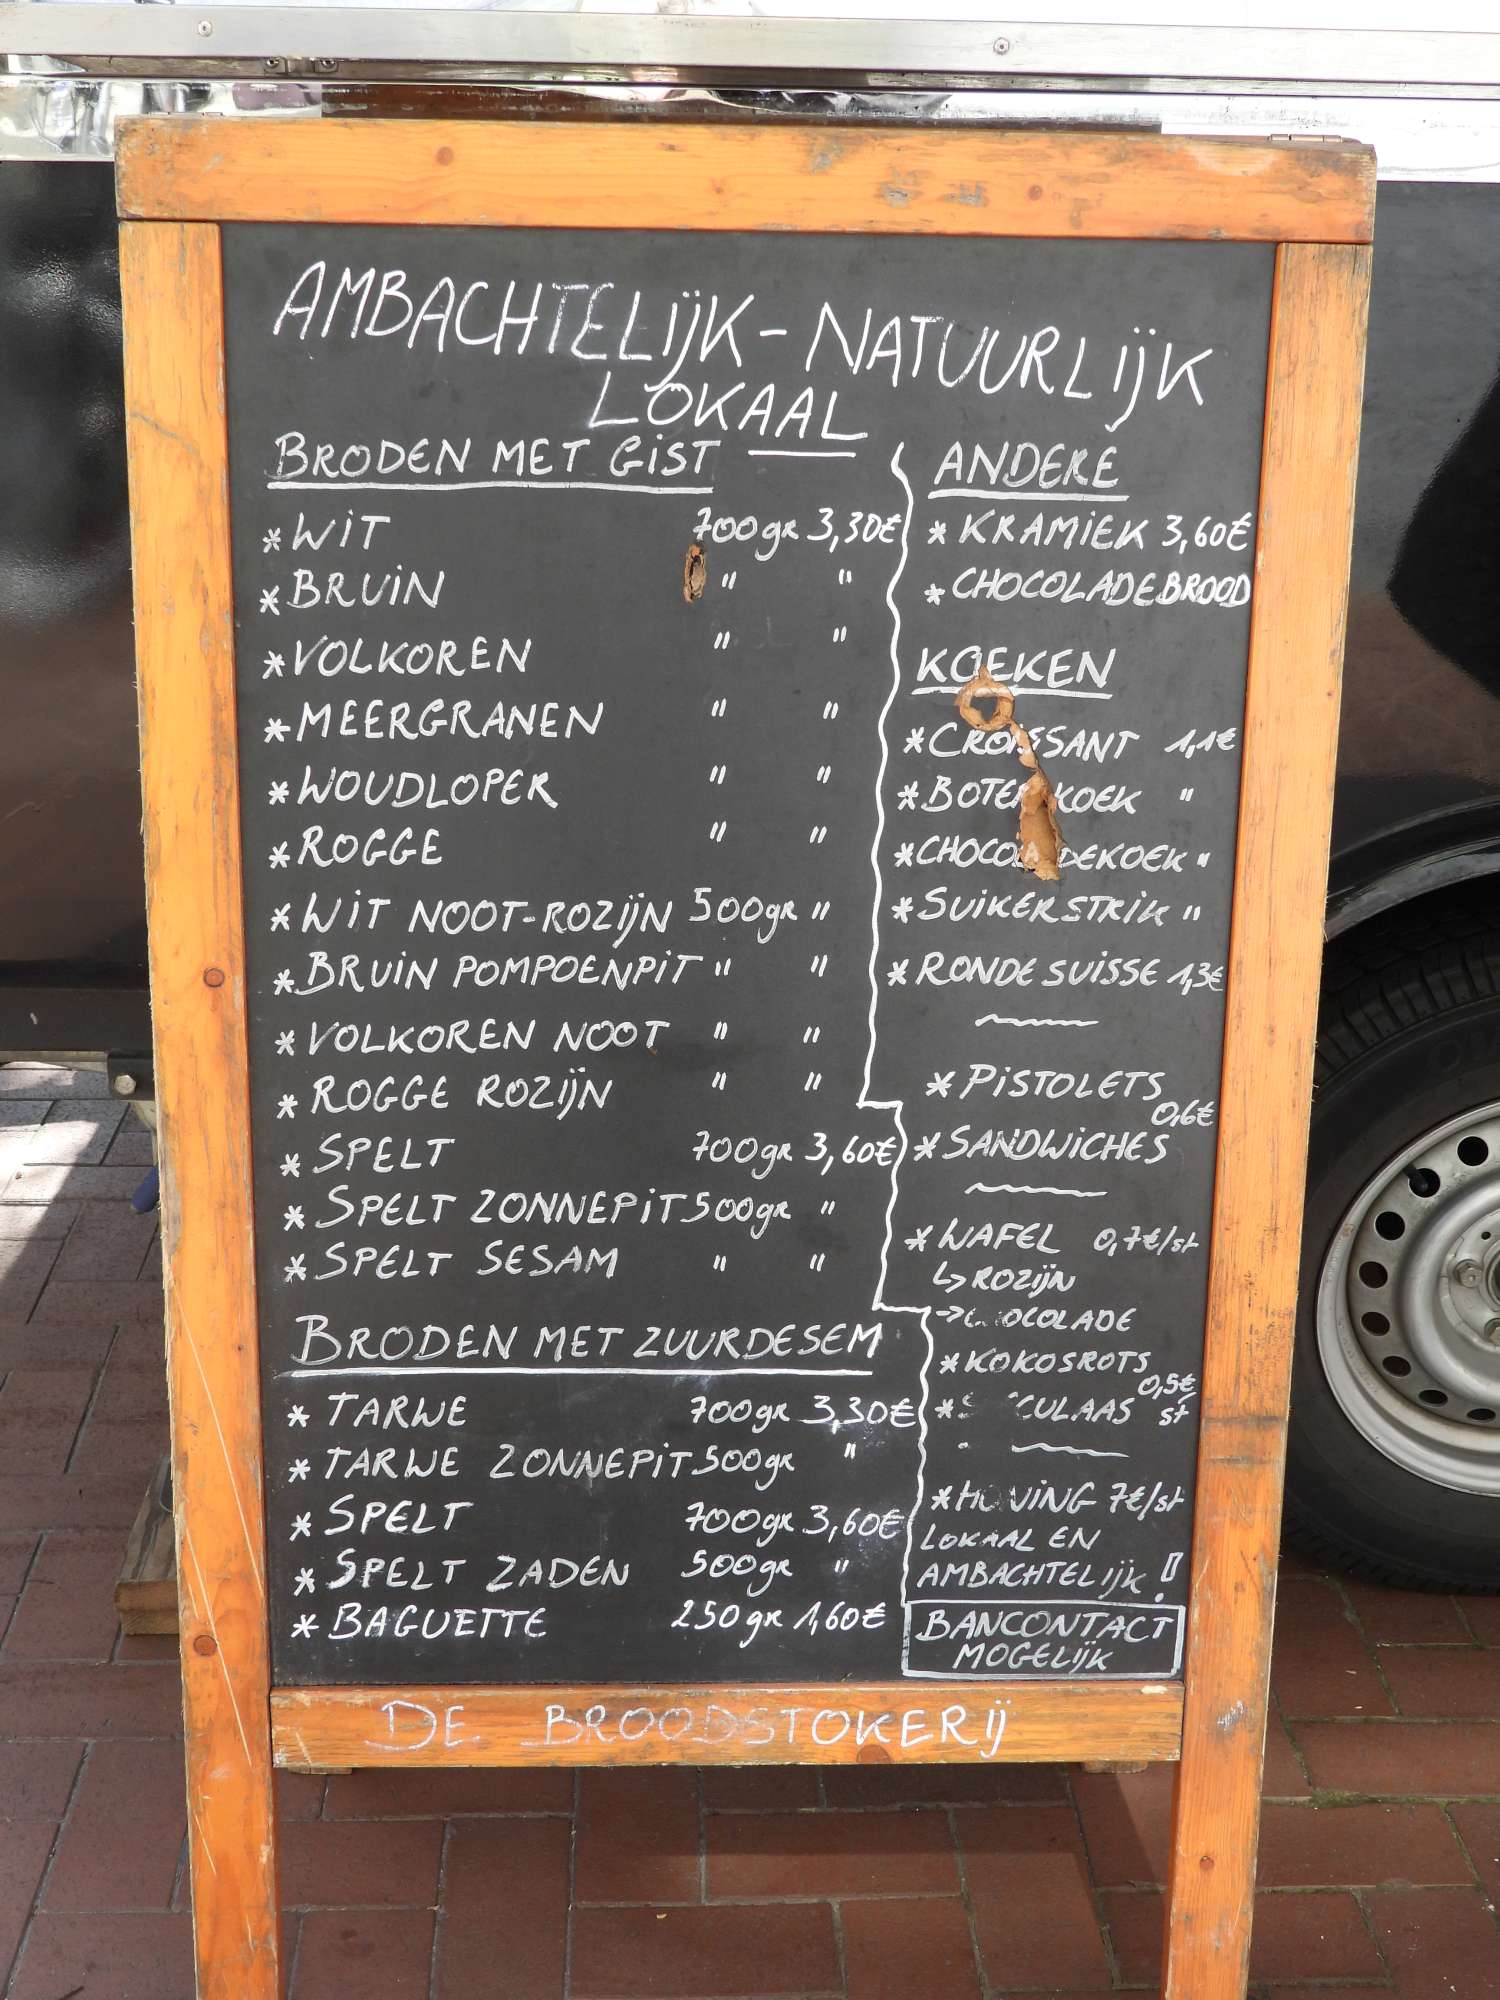 AMBACHTELIJK - NATUURLIJK
LOKAAL
BRODEN MET GIST
* WIT 700gr 3,30€
* BRUIN " "
* VOLKOREN " "
* MEERGRANEN " "
* WOUDLOPER " "
* ROGGE " "
* WIT NOOT-ROZIJN 500gr "
* BRUIN POMPOENPIT " "
* VOLKOREN NOOT " "
* ROGGE ROZIJN " "
* SPELT 700gr 3,60€
* SPELT ZONNEPIT 500gr "
* SPELT SESAM " "
BRODEN MET ZUURDESEM
* TARWE 700gr 3,30€
* TARWE ZONNEPIT 500gr "
* SPELT 700gr 3,60€
* SPELT ZADEN 500gr "
* BAGUETTE 250gr 1,60€
ANDERE
* KRAMIEK 3,60€
* CHOCOLADEBROOD
KOEKEN
* CROISSANT 1,1€
* BOTERKOEK "
* CHOCOLADEKOEK "
* SUIKERSTRIK "
* RONDE SUISSE 1,3€
* PISTOLETS
0,6€
* SANDWICHES
* WAFEL 0,7€/st
↳ ROZIJN
→ CHOCOLADE
* KOKOSROTS
0,5€
* SPECULAAS st
* HONING 7€/st
LOKAAL EN
AMBACHTELIJK !
BANCONTACT
MOGELIJK
DE BROODSTOKERIJ